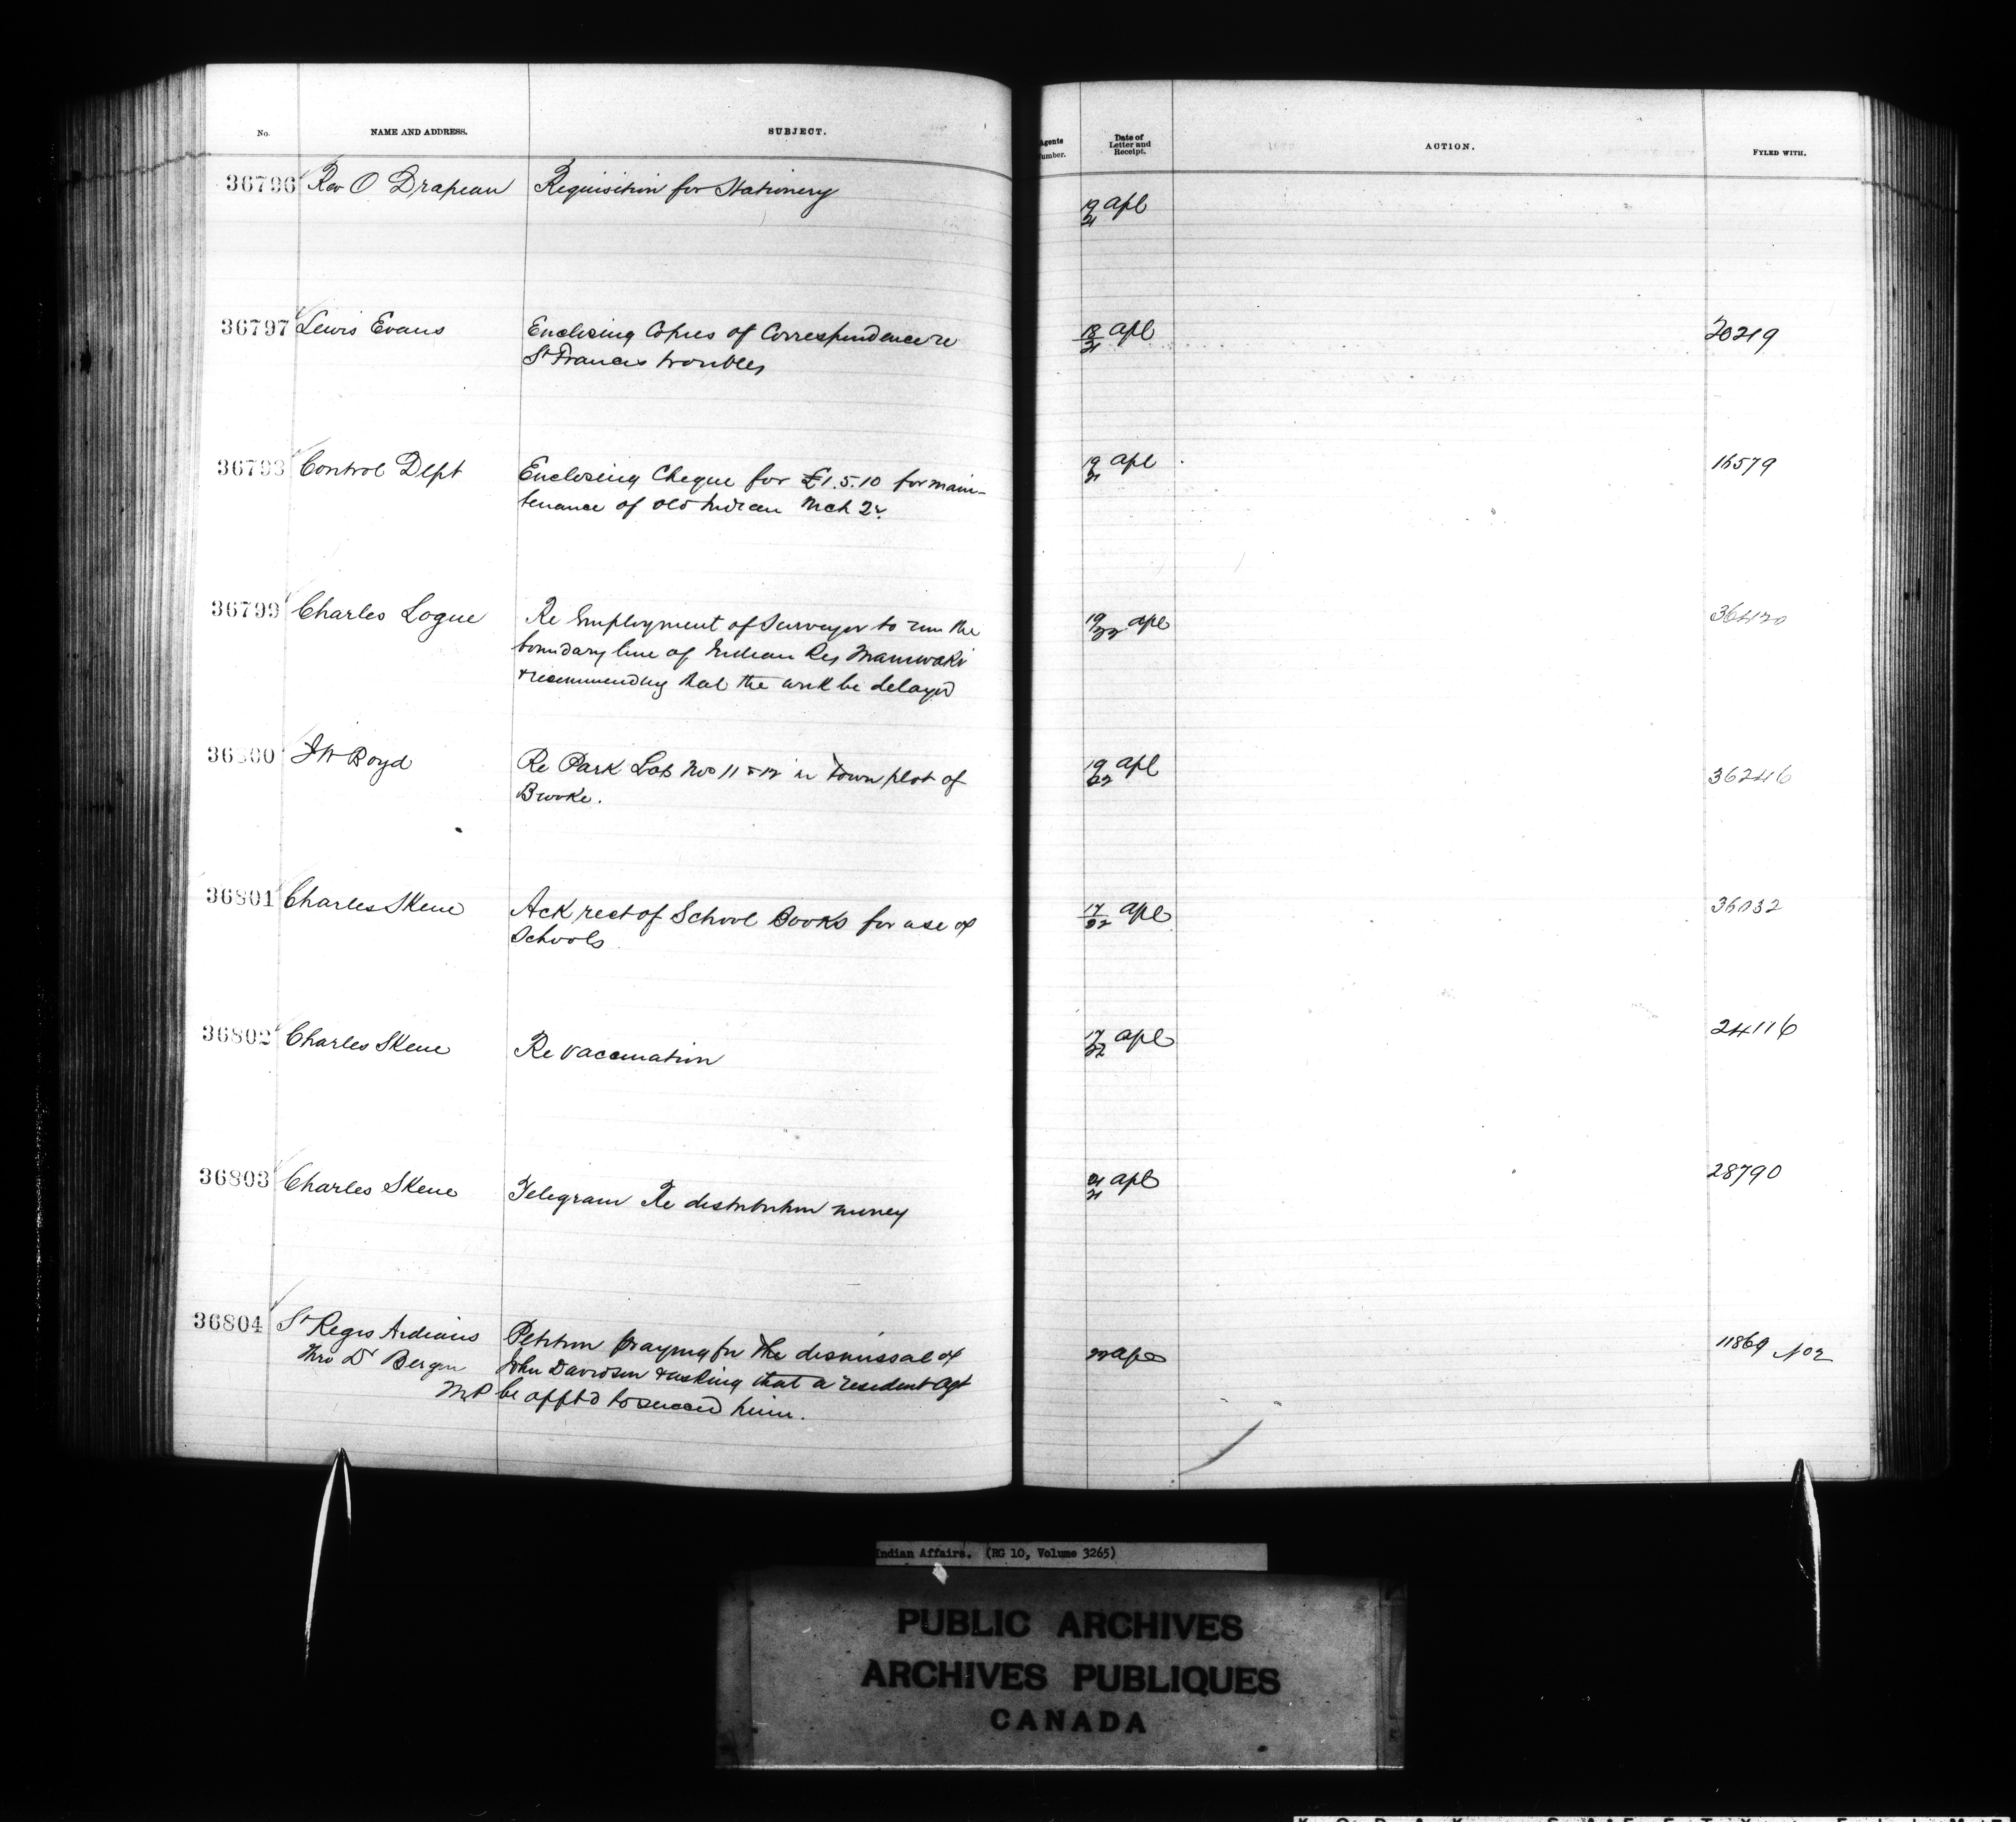 No. NAME AND ADDRESS. SUBJECT. Agents Number. Date of Letter and Receipt. ACTION. FYLED WITH.
36796 Rev O Drapeau Requisition for Stationery 19/21 Apl
36797 Lewis Evans Enclosing Copies of Correspondence re 18/21 Apl 20219
St Francis troubles
36798 Control Dept Enclosing Cheque for £1.5.10 for main- 19/21 Apl 16579
tenance of old Indian Mch 2r.
36799 Charles Logue Re Employment of Surveyor to run the 19/22 Apl 36420
boundary line of Indian Res Maniwaki
& recommending that the work be delayed
36800 J W Boyd Re Park Lots Nos 11 & 12 in town plot of 19/22 Apl 36246
Brooke.
36801 Charles Skene Ack rect of School Books for use of 17/22 Apl 36032
Schools
36802 Charles Skene Re vaccination 17/22 Apl 24116
36803 Charles Skene Telegram Re distribution money 21/21 Apl 28790
36804 St Regis Indians Petition praying for the dismissal of 22 Apl 11869 No 2
thro Dr Bergin John Davidson & asking that a resident Agt
MP be apptd to succeed him.
Indian Affairs. (RG 10, Volume 3265)
PUBLIC ARCHIVES
ARCHIVES PUBLIQUES
CANADA